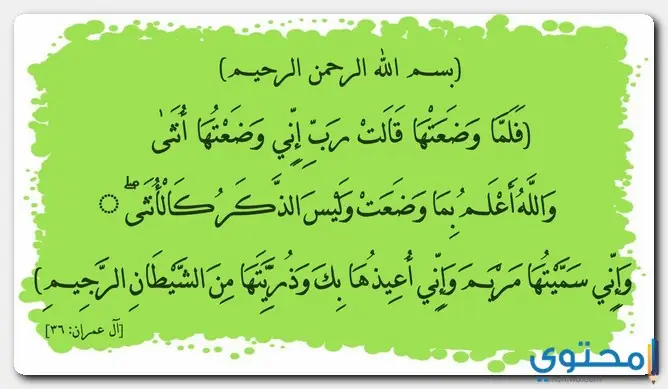 (بسم الله الرحمن الرحيم)
(فَلَمَّا وَضَعَتْهَا قَالَتْ رَبِّ إِنِّي وَضَعْتُهَا أُنْثَىٰ
وَاللَّهُ أَعْلَمُ بِمَا وَضَعَتْ وَلَيْسَ الذَّكَرُ كَالْأُنْثَىٰ ۖ
وَإِنِّي سَمَّيْتُهَا مَرْيَمَ وَإِنِّي أُعِيذُهَا بِكَ وَذُرِّيَّتَهَا مِنَ الشَّيْطَانِ الرَّجِيمِ)
[آل عمران: ٣٦]
محتوى